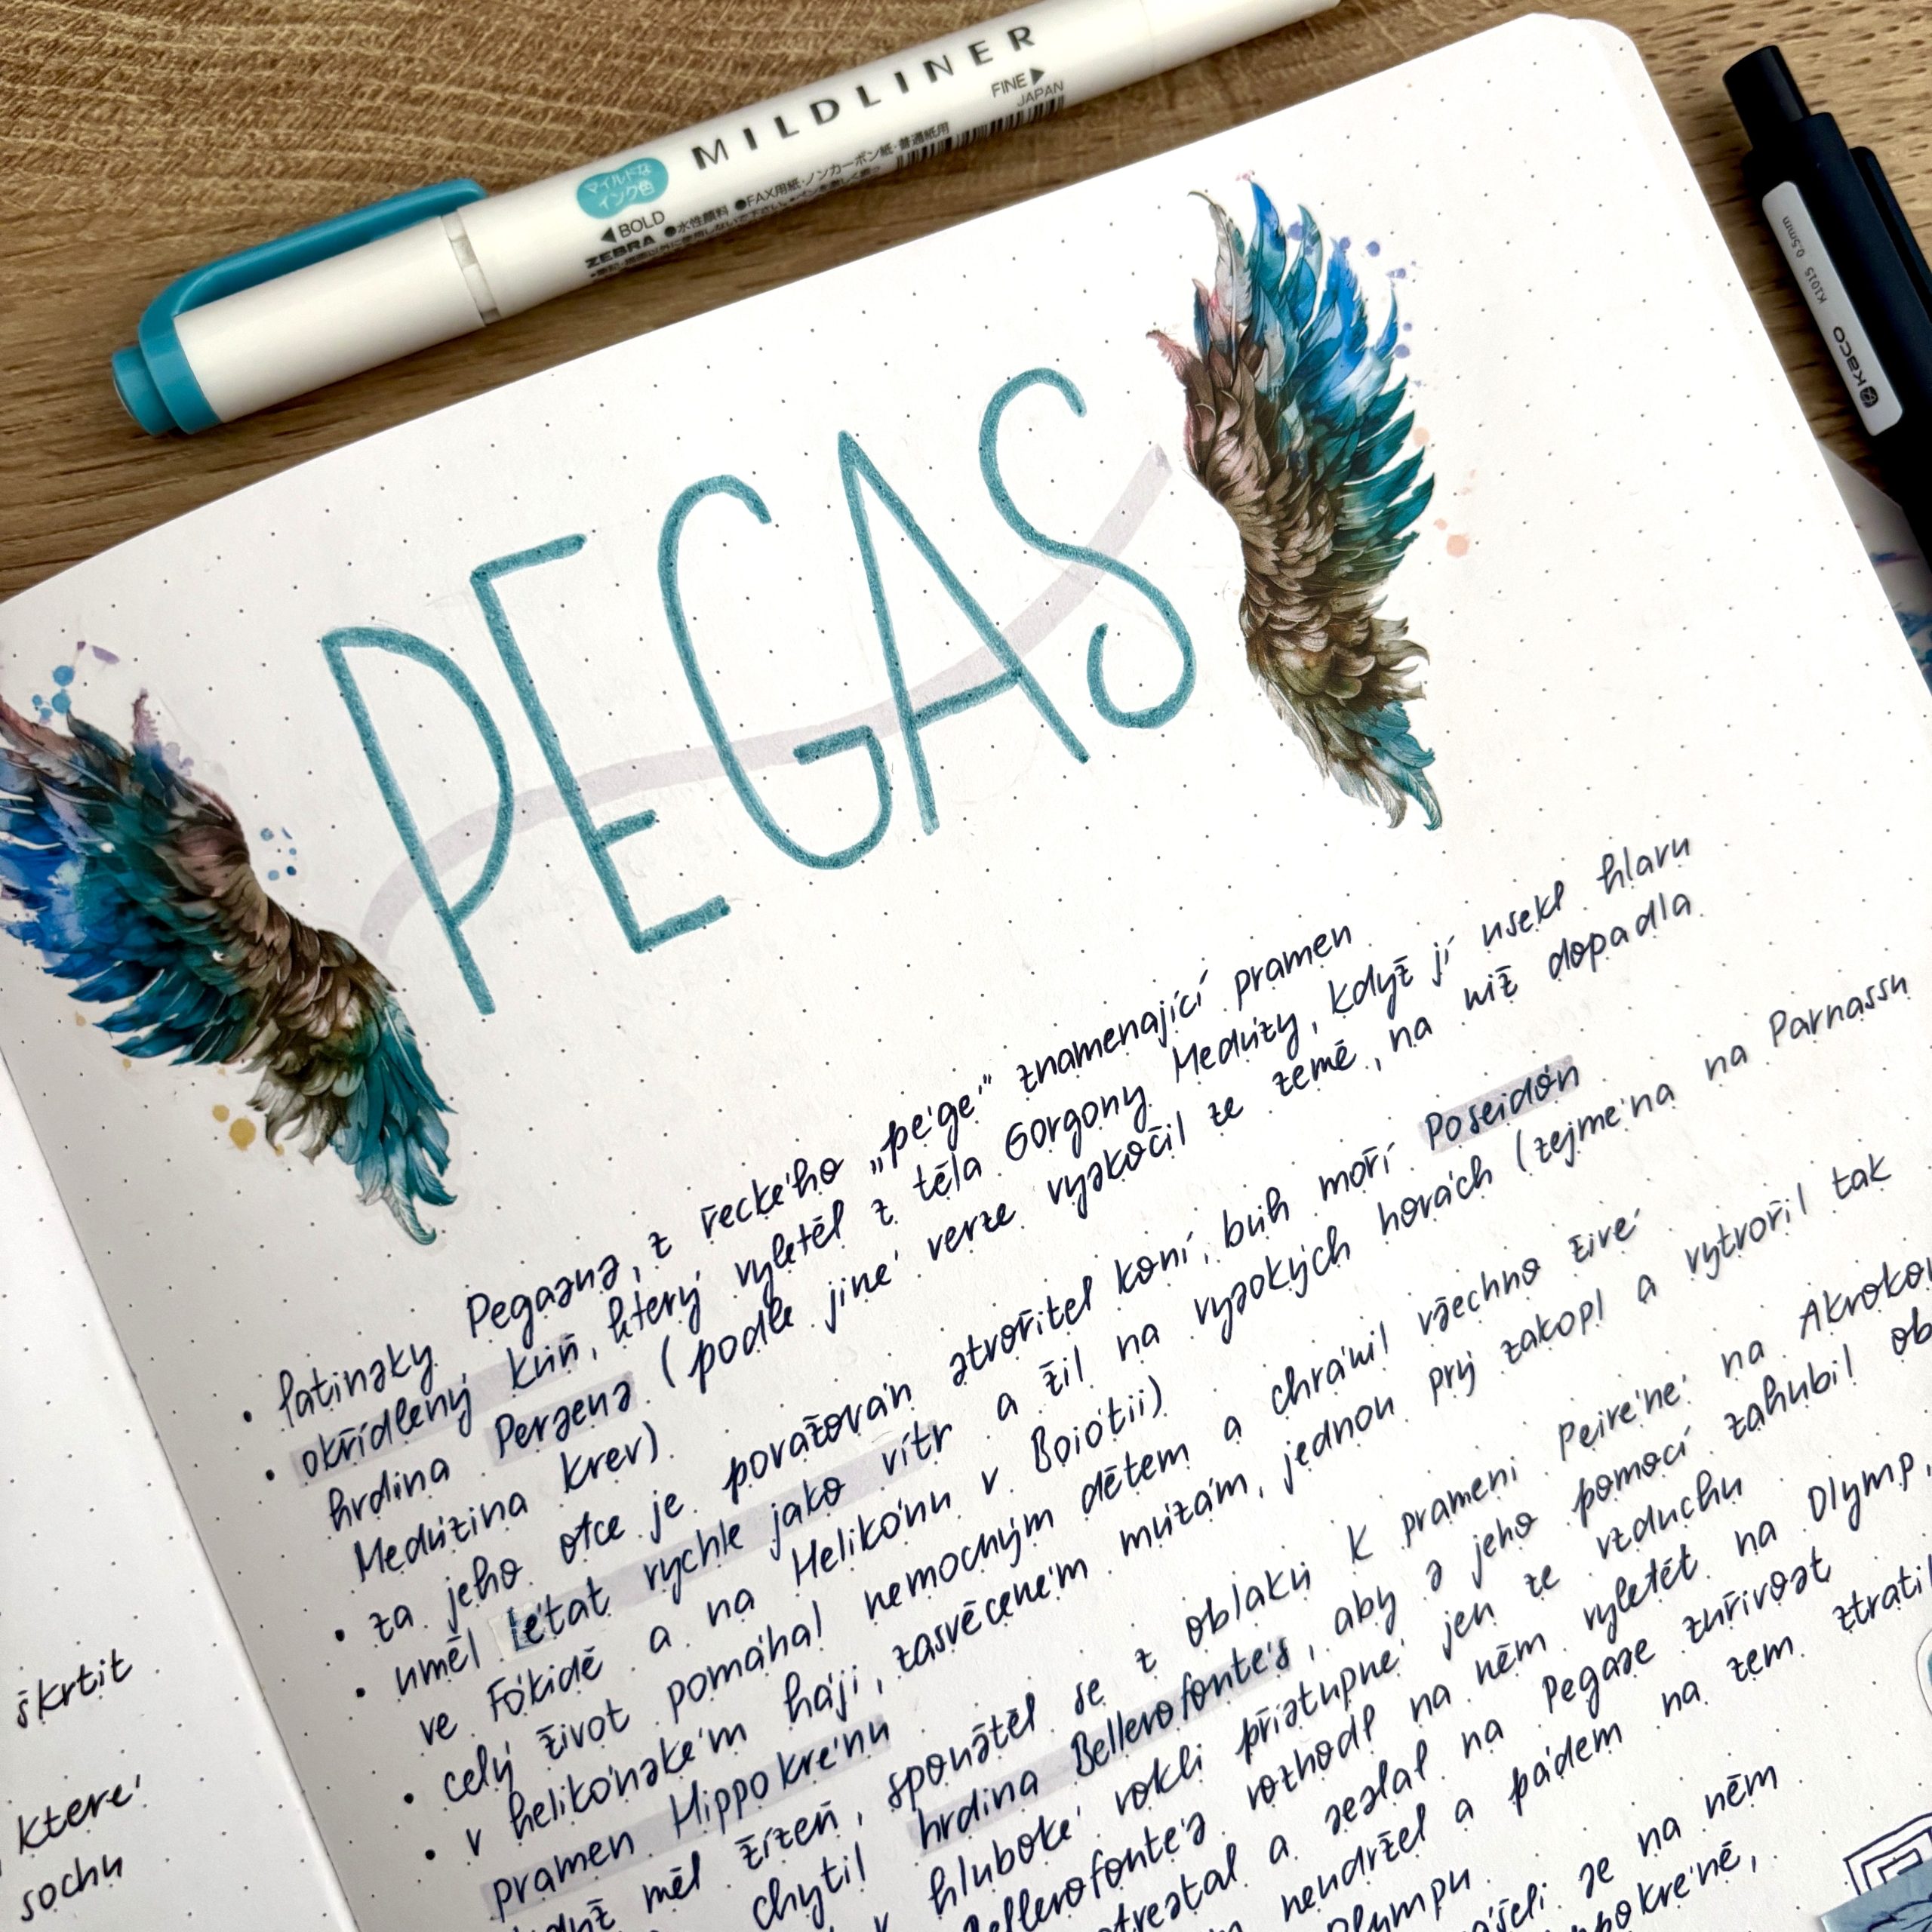 MILDLINER
FINE▶
JAPAN
マイルドな
インク色
◀BOLD
ZEBRA ●水性顔料 ●FAX用紙・ノンカーボン紙・普通紙用
K1015 0.5mm
KACO
PEGAS
• latinsky Pegasus, z řeckého „pégé“ znamenající pramen
• okřídlený kůň, který vyletěl z těla Gorgony Medúzy, když jí usekl hlavu
hrdina Perseus (podle jiné verze vyskočil ze země, na niž dopadla
Medúzina krev)
• za jeho otce je považován stvořitel koní, bůh moří Poseidón
• uměl létat rychle jako vítr a žil na vysokých horách (zejména na Parnassu
ve Fókidě a na Helikónu v Boiótii)
• celý život pomáhal nemocným dětem a chránil všechno živé
• v helikónském háji, zasvěceném múzám, jednou prý zakopl a vytvořil tak
pramen Hippokrénu
měl žízeň, spouštěl se z oblaků k prameni Peiréné na
chytil hrdina Bellerofontés, aby s jeho pomocí zahubil
v hluboké rokli přístupné jen ze vzduchu
rozhodl na něm vyletět na Olymp,
a seslal na Pegase zuřivost
neudržel a pádem na zem ztratil
se na něm
škrtit
které
sochu